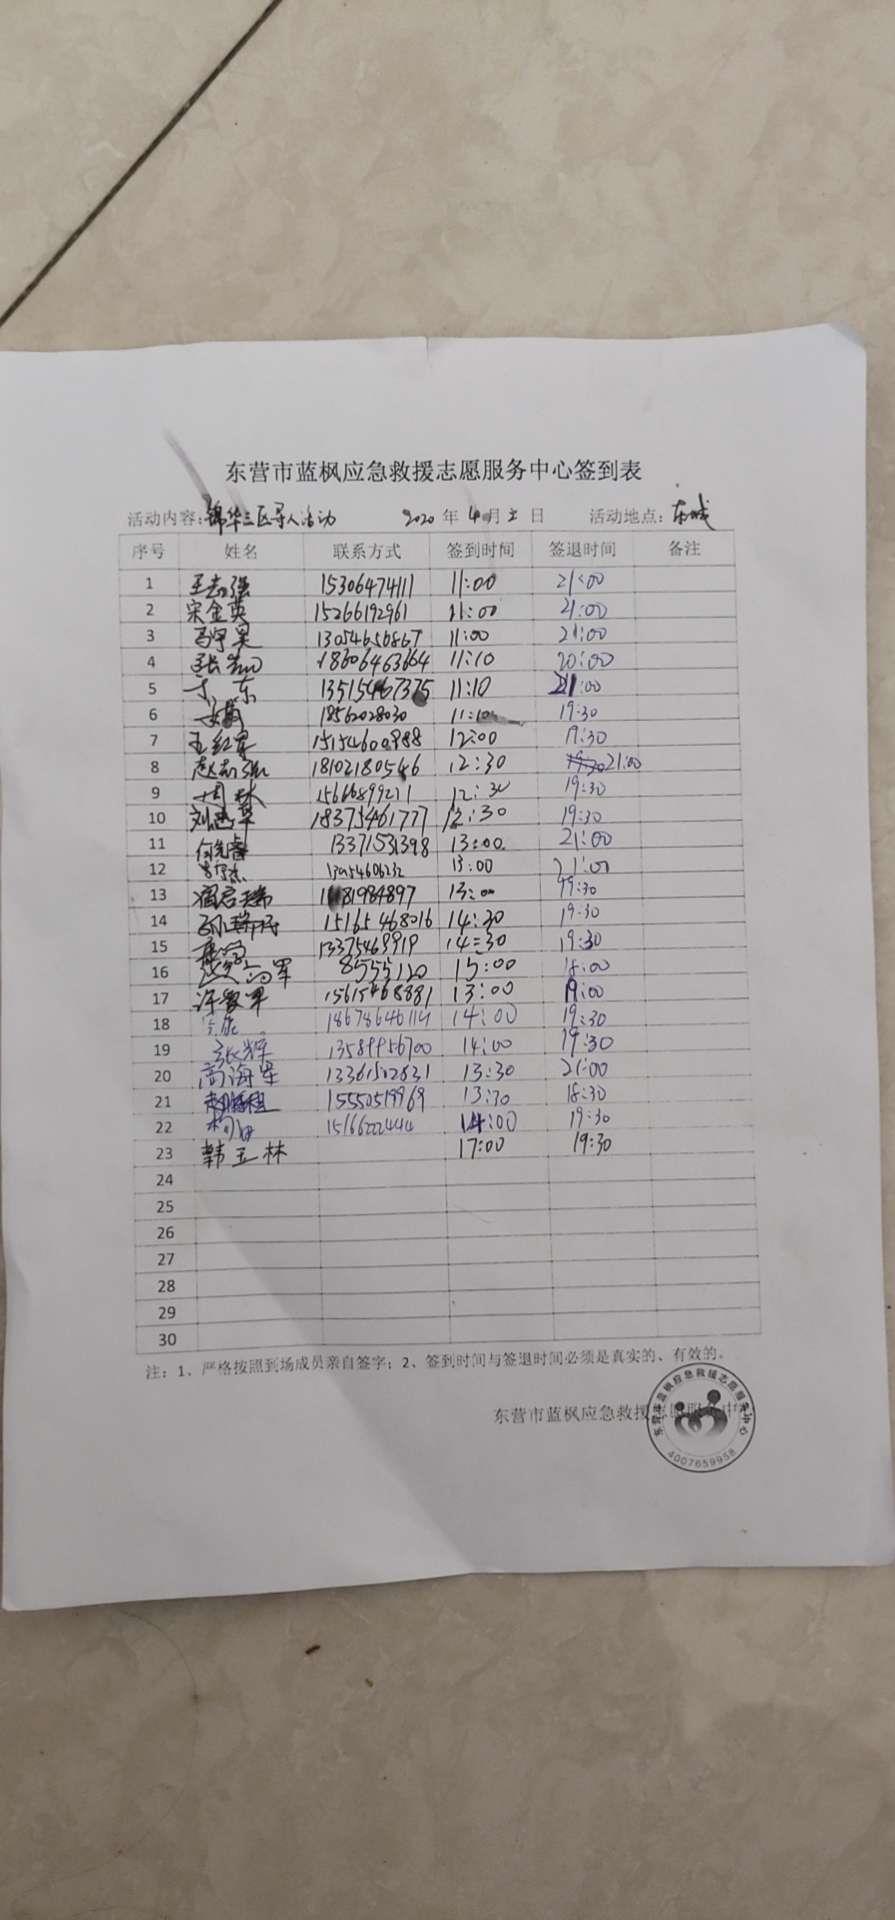 东营市蓝枫应急救援志愿服务中心签到表
活动内容:锦华三区寻人活动 2020年4月 日 活动地点:东城
序号 姓名 联系方式 签到时间 签退时间 备注
1 王志强 15306474111 11:00 21:00
2 宋金英 15266192961 11:00 21:00
3 13054656867 11:00 21:00
4 18606463664 11:10 20:00
5 东 13515467375 11:10 21:00
6 18562028030 11:10 19:30
7 王红军 15154600988 12:00 19:30
8 赵志强 18102180546 12:30 21:00
9 周林 15666899271 12:30 19:30
10 18375461777 12:30 19:30
11 13371531398 13:00 21:00
12 13954606232 13:00 21:00
13 13:00 19:30
14 15165468016 14:30 19:30
15 13375469919 14:30 19:30
16 8555120 15:00 18:00
17 许爱军 15615468881 13:00 19:00
18 18678646114 14:00 19:30
19 张辉 13589956700 14:00 19:30
20 高海军 13361502831 13:30 21:00
21 15550519969 13:30 18:30
22 15166222444 14:00 19:30
23 韩玉林 17:00 19:30
24
25
26
27
28
29
30
注:1、严格按照到场成员亲自签字;2、签到时间与签退时间必须是真实的、有效的。
东营市蓝枫应急救援志愿服务中心
东营市蓝枫应急救援志愿服务中心
4007659958